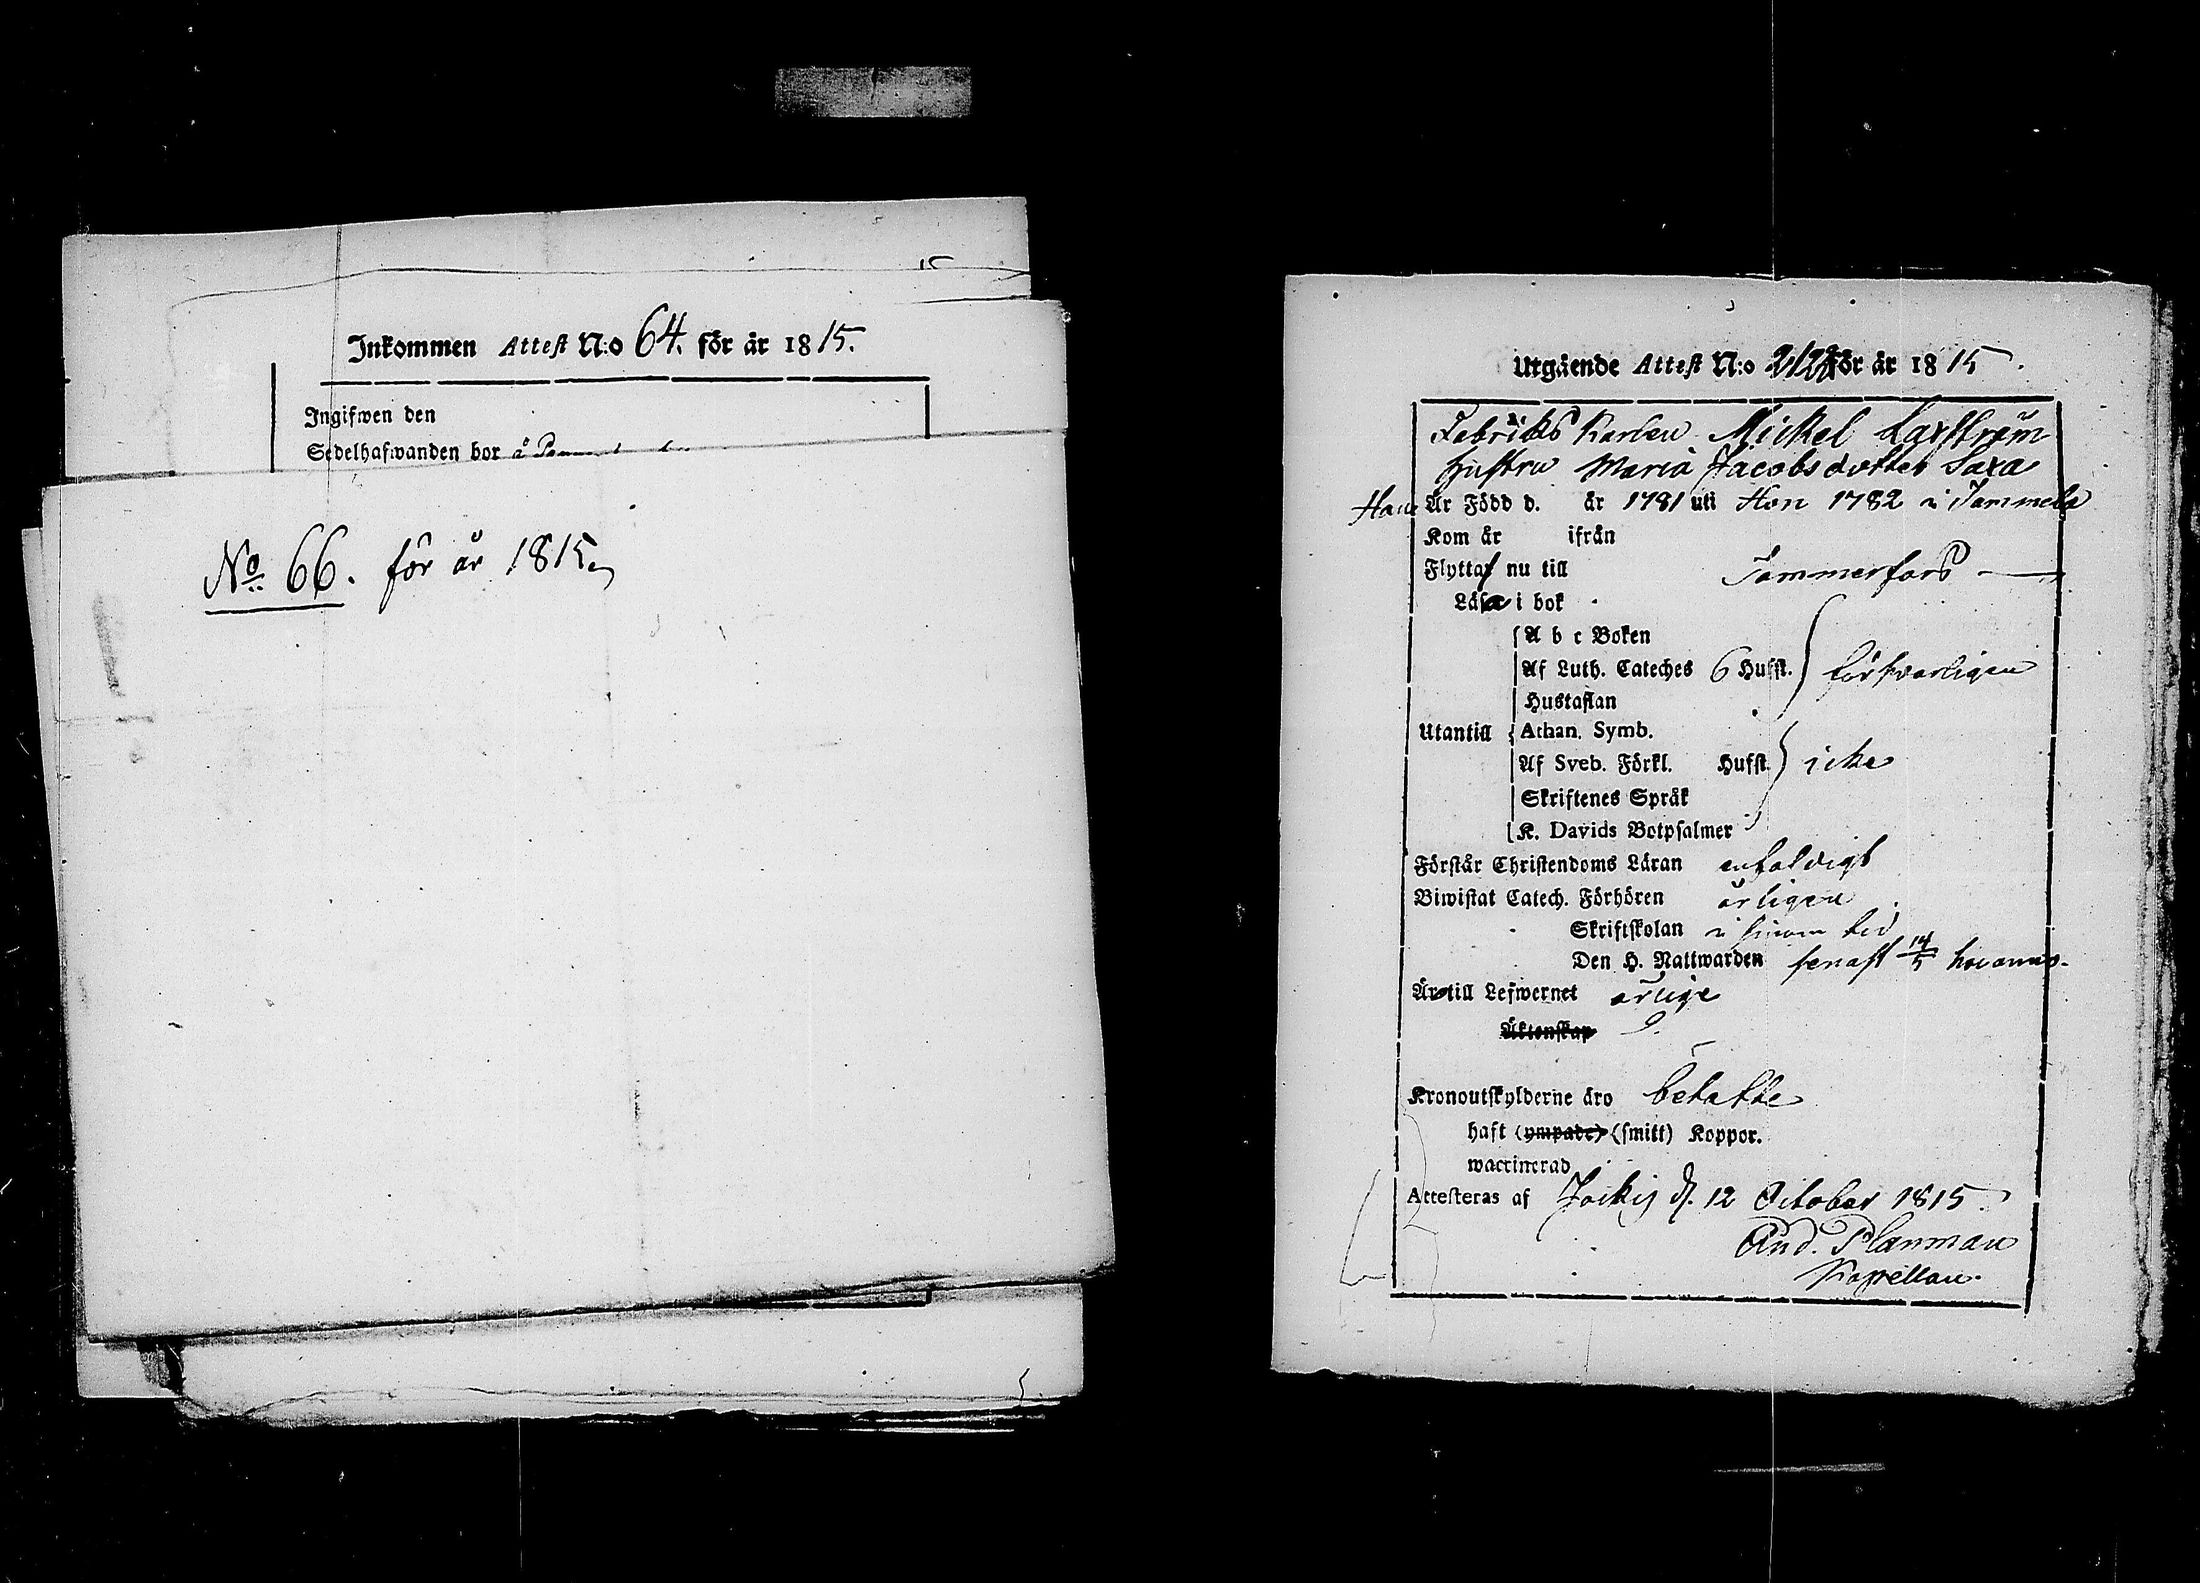 Inkommen Attest N:o 64. för år 1815.
Ingifwen den
Sedelhafwanden bor å
No 66. för år 1815.
Utgående Attest N:o för år 1815.
Fabriks Karlen Mickel Laxström
hustru Maria Jacobsdotter Saxa
Han Är Född d. år 1781 uti Hon 1782 i Tammela
Kom år ifrån
Flytta nu till Tammerfors
Läsa i bok
A b c Boken
Af Luth. Cateches 6 Hufst. försvarligen
Hustaflan
Utantill Athan. Symb.
Af Sveb. Förkl. Hufst. icke
Skriftenes Språk
K. Davids Botpsalmer
Förstår Christendoms Läran enfaldigt
Biwistat Catech. Förhören årligen
Skriftskolan i sinom tid
Den H. Nattwarden senast 14/5
Äro till Lefwernet ärlige
Äktenskap
Kronoutskylderne äro betalte
haft (ympade) (smitt) Koppor.
waccinerad
Attesteras af Jockis d. 12 October 1815.
And. Planman
Kapellan.